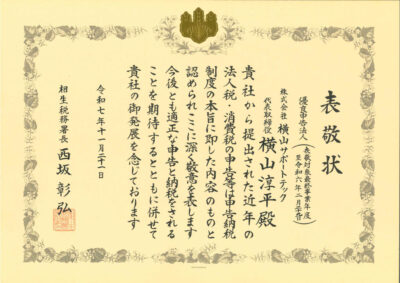 表敬状
優良申告法人
株式会社 横山サポートテック
代表取締役 横山淳平殿
貴社から提出された近年の
法人税・消費税の申告等は申告納税
制度の本旨に即した内容のものと
認められここに深く敬意を表します
今後とも適正な申告と納税をされる
ことを期待するとともに併せて
貴社の御発展を念じております
令和七年十一月二十一日
相生税務署長 西坂彰弘